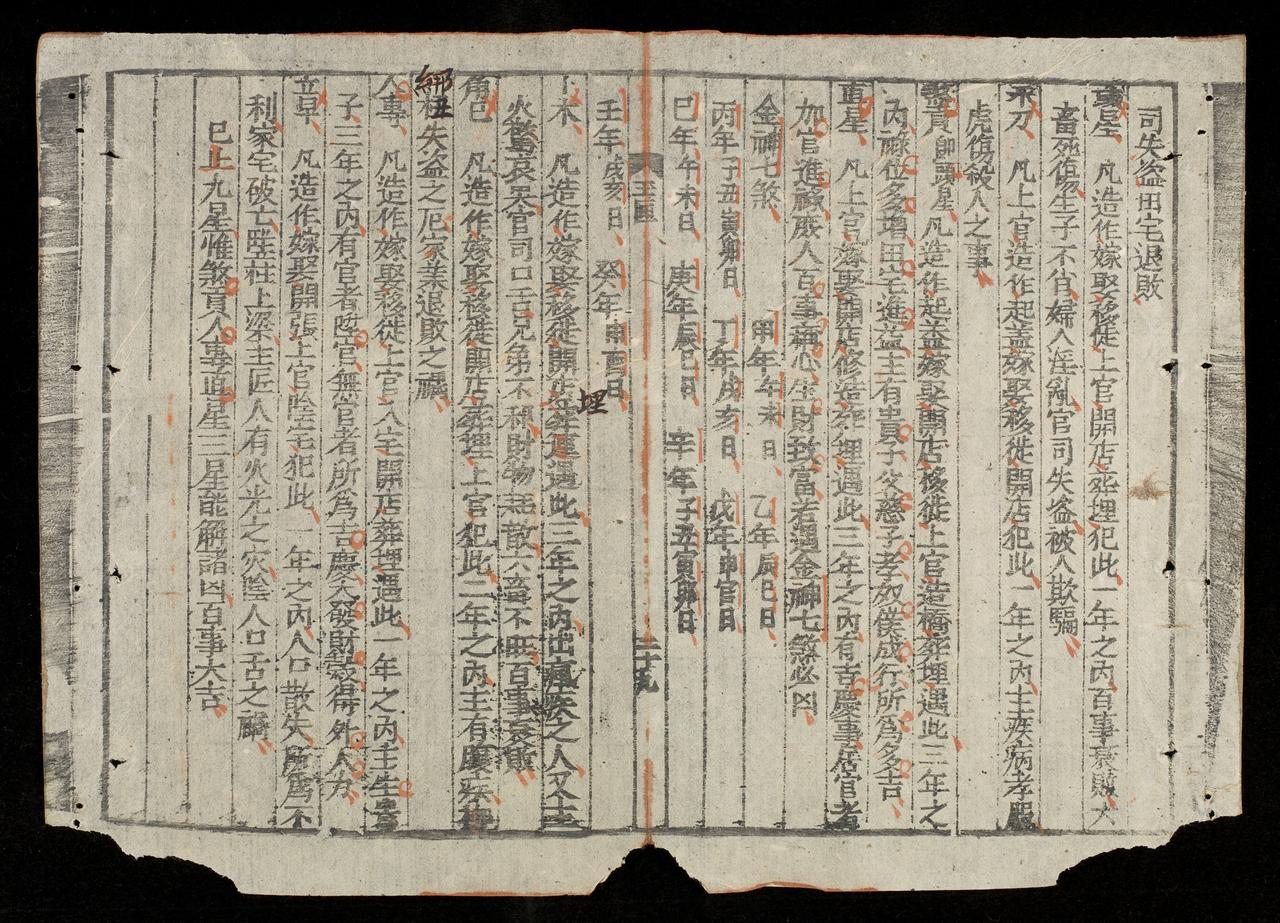 司失盜田宅退敗
星 凡造作嫁娶移徙上官開店葬埋犯此一年之内百事衰敗大
畜死傷生子不肖婦人淫亂官司失盜被人欺騙
刀 凡上官造作起盖嫁娶移徙開店犯此一年之内主疾病孝服
虎傷殺人之事
貢即頭星 凡造作起盖嫁娶開店移徙上官造橋葬埋遇此三年之
内祿位多增田宅進益主有貴子父慈子孝奴僕成行所為多吉
直星 凡上官嫁娶開店修造葬埋遇此三年之内有吉慶事居官者
加官進祿庶人百事稱心生財致富若遇金神七煞必凶
金神七煞 甲年午未日 乙年辰巳日
丙年子丑寅卯日 丁年戌亥日 戊年申酉日
己年午未日 庚年辰巳日 辛年子丑寅卯日
三十九
壬年戌亥日 癸年申酉日
埋
卜木 凡造作嫁娶移徙開店葬遇此三年之内出瘟疾之人又主
火驚哀哭官司口舌兄弟不和財物耗散六畜不旺百事哀
角巳 凡造作嫁娶移徙開店葬埋上官犯此二年之内主有
丑失盜之厄家業退敗之禍
人專 凡造作嫁娶移徙上官入宅開店葬埋遇此一年之内主生貴
子三年之内有官者陞官無官者所為吉慶大發財穀得外人力
立早 凡造作嫁娶開張上官陞宅犯此一年之内人口散失所為不
利家宅破亡竪柱上梁主匠人有火光之灾陰人口舌之禍
已上九星惟煞貢人專直星三星能解諸凶百事大吉